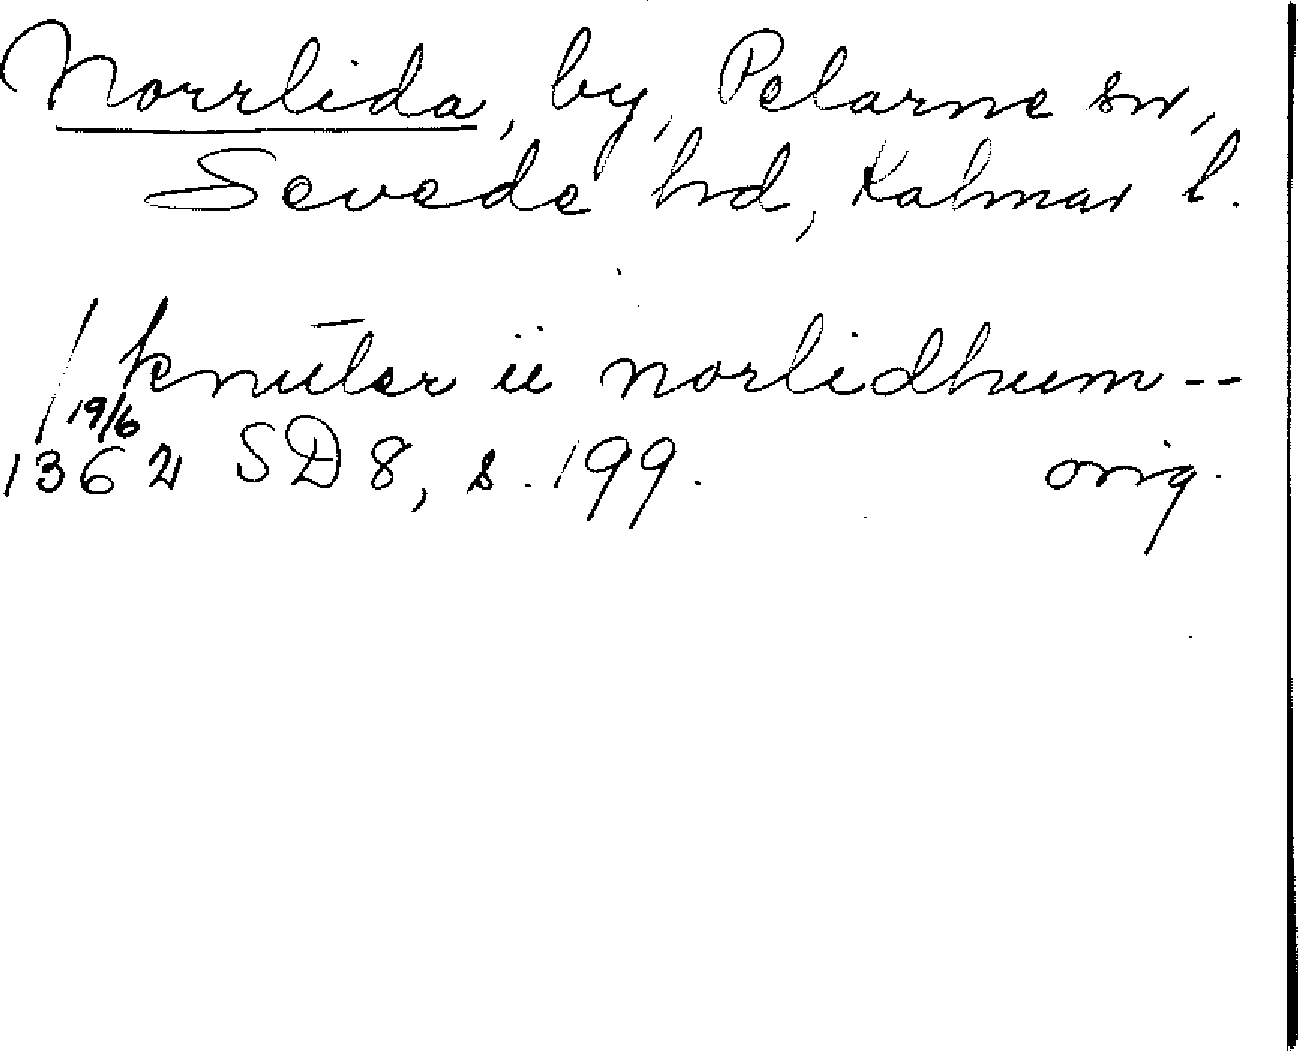 Norrlida, by, Pelarne sn,
Sevede hd, Kalmar l.
/ knūter ii norlidhum --
19/6
1362 SD 8, s. 199. orig.